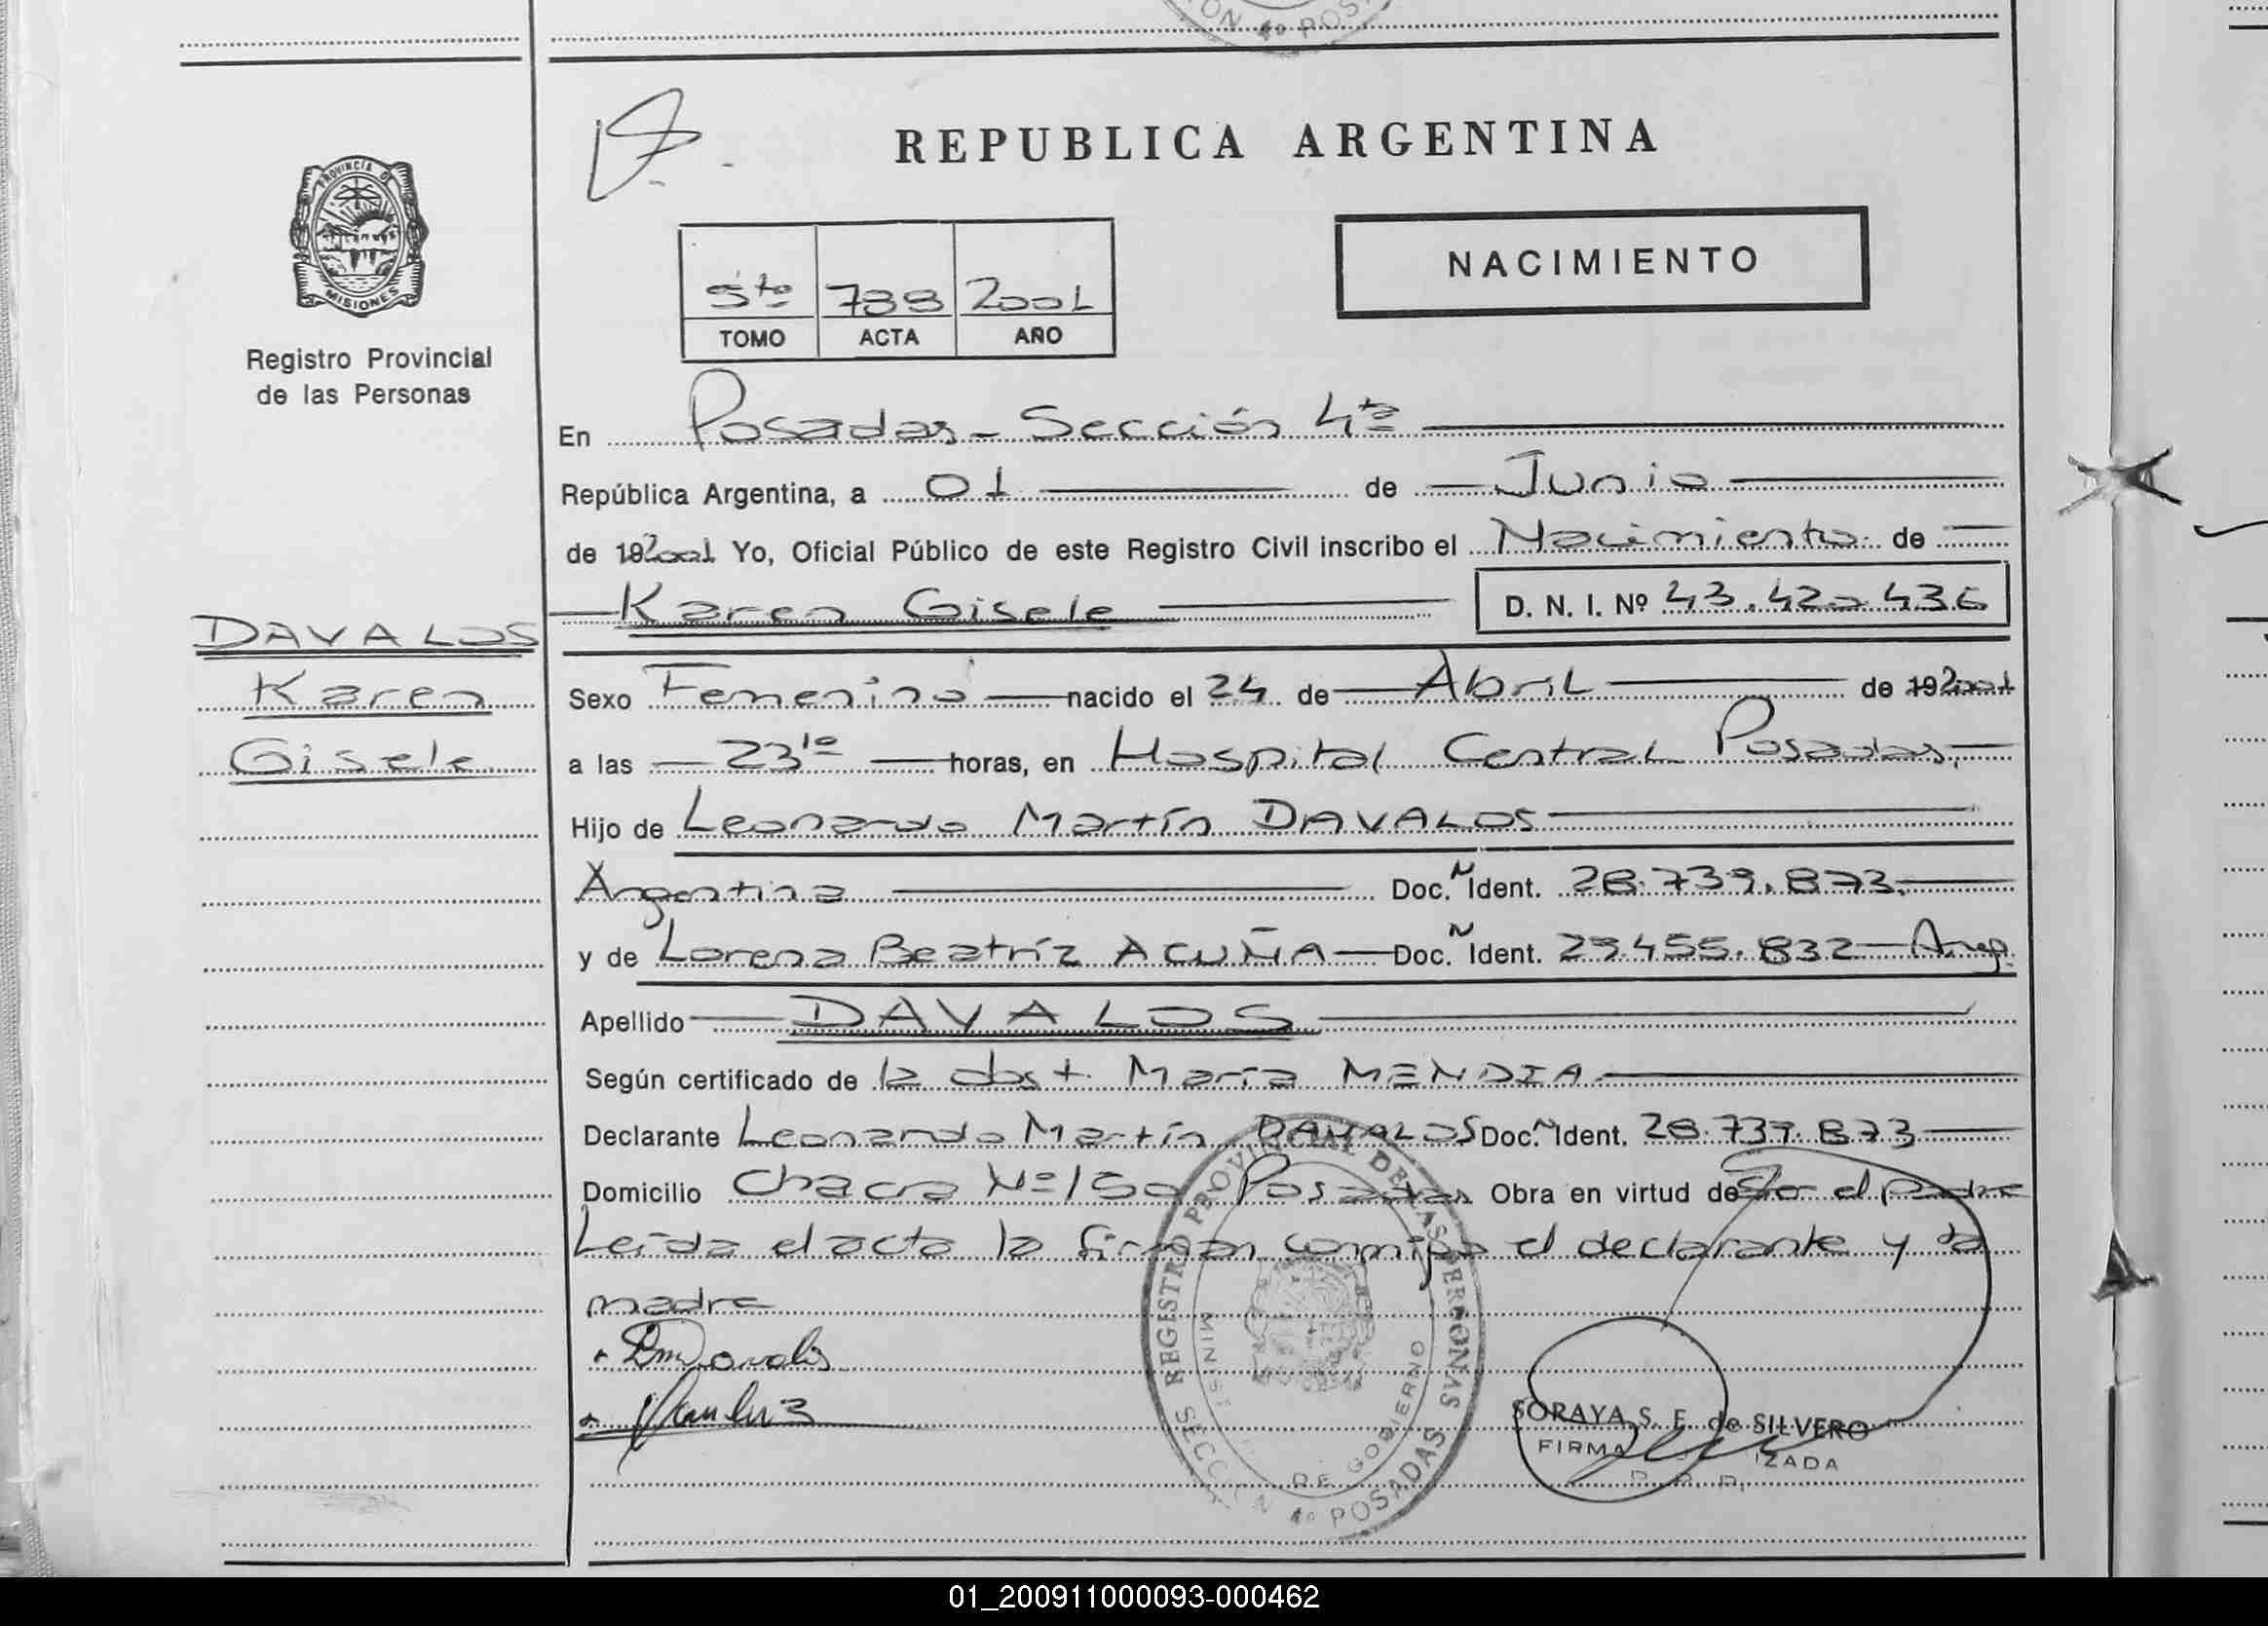 REPUBLICA ARGENTINA
PROVINCIA D
MISIONES
Registro Provincial
de las Personas
NACIMIENTO
5to 739 2001
TOMO ACTA AÑO
En Posadas - Sección 4ta
República Argentina, a 01 de Junio
de 192001 Yo, Oficial Público de este Registro Civil inscribo el Nacimiento de
Karen Gisele D. N. I. Nº 43.420436
DAVALOS
Karen
Gisele
Sexo Femenino nacido el 24 de Abril de 192001
a las 23 10 horas, en Hospital Central Posadas,
Hijo de Leonardo Martín DAVALOS
Argentina Doc. N Ident. 28.739.873.
y de Lorena Beatríz ACUÑA Doc. N Ident. 29.455.832 Arg.
Apellido DAVALOS
Según certificado de la obst. María MENDIA
Declarante Leonardo Martín DAVALOS Doc. N Ident. 28.739.873
Domicilio Chacra Nº 150 Posadas Obra en virtud de Ser el padre
Leída el acta la firman conmigo el declarante y la
madre
REGISTRO PROVINCIAL DE LAS PERSONAS
MINIST DE GOBIERNO
SECCION 4º POSADAS
SORAYA S. E. de SILVERO
FIRMA IZADA
01_200911000093-000462